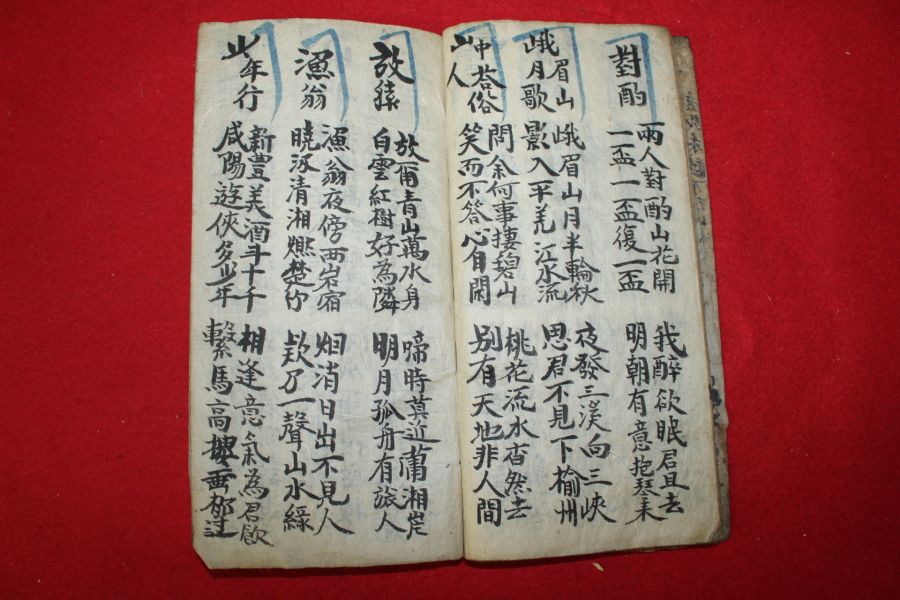 對酌
兩人對酌山花開
一盃一盃復一盃
我醉欲眠君且去
明朝有意抱琴來
峨眉山月歌
峨眉山月半輪秋
影入平羌江水流
夜發三溪向三峽
思君不見下楡州
山中荅俗人
問余何事捿碧山
笑而不答心自閑
桃花流水杳然去
別有天地非人間
放猿
放爾青山萬水身
白雲紅樹好為隣
啼時莫近蕭湘岸
明月孤舟有旅人
漁翁
漁翁夜傍西岩宿
曉汲清湘燃楚竹
烟消日出不見人
欵了一聲山水緣
少年行
新豐美酒斗十千
咸陽遊俠多少年
相逢意氣為君飮
繫馬高樓垂柳边